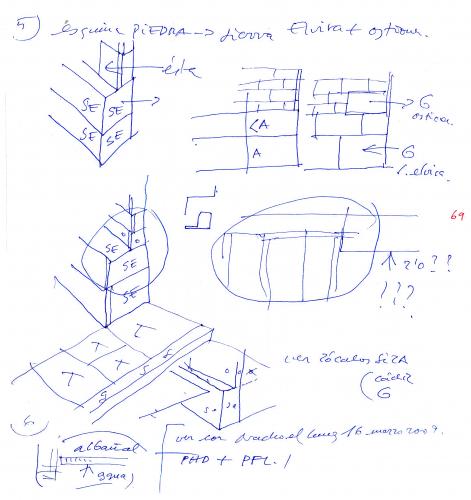 5) esquina PIEDRA → sierra Elvira + ostiones.
ésta
SE SE
SE SE
CA
A
G
ostiones
G
s. elvira.
69
SE
SE
SE
2'0??
???
T T S
T T S
S
ver zócalos SIZA
(Cádiz
G
6)
albañal
(agua)
ver con Nacho el lunes 16 marzo 2009.
PHD + PFL.